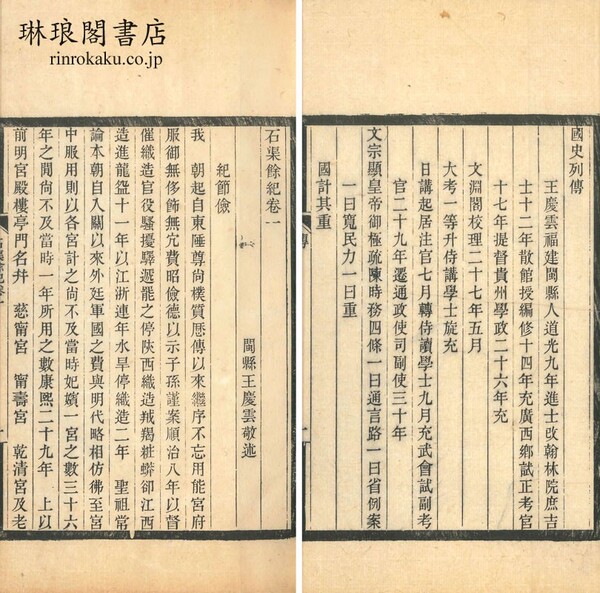 琳琅閣書店
rinrokaku.co.jp
國史列傳
王慶雲福建閩縣人道光九年進士改翰林院庶吉
士十二年散館授編修十四年充廣西鄉試正考官
十七年提督貴州學政二十六年充
文淵閣校理二十七年五月
大考一等升侍講學士旋充
日講起居注官七月轉侍讀學士九月充武會試副考
官二十九年遷通政使司副使三十年
文宗顯皇帝御極疏陳時務四條一曰通言路一曰省例案
一曰寬民力一曰重
國計其重
石渠餘紀卷一
閩縣王慶雲敬述
紀節儉
我　朝起自東陲尊尚樸質歷傳以來繼序不忘用能宮府
服御無侈飾無冗費昭儉德以示子孫謹案順治八年以督
催織造官役騷擾驛遞罷之停陝西織造羢羯粧蟒卻江西
造進龍盌十一年以江浙連年水旱停織造二年　聖祖常
論本朝自入關以來外廷軍國之費與明代略相仿彿至宮
中服用則以各宮計之尚不及當時妃嬪一宮之數三十六
年之間尚不及當時一年所用之數康熙二十九年　上以
前明宮殿樓亭門名幷　慈甯宮　甯壽宮　乾清宮及老